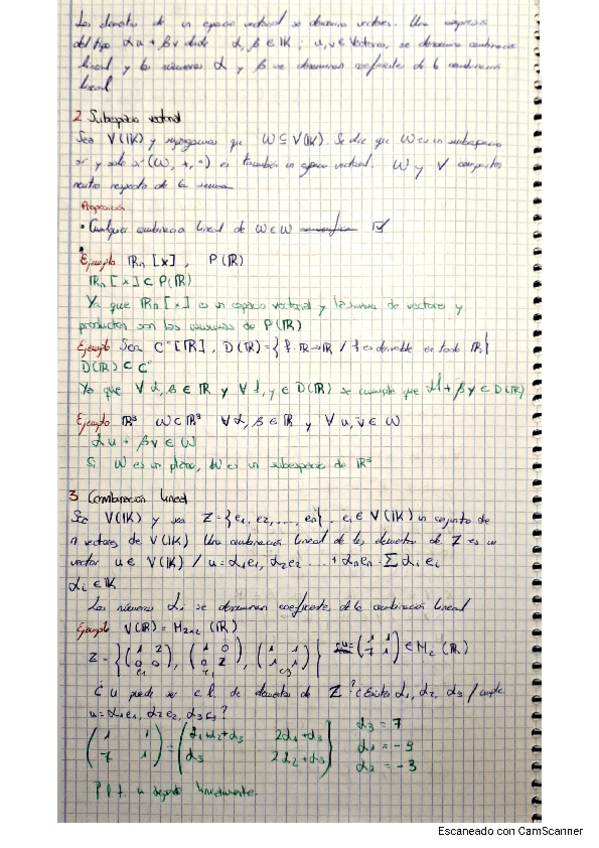 Los elementos de un espacio vectorial se denominan vectores. Una expresión
del tipo αu + βv donde α, β ∈ IK ; u, v ∈ Vectores, se denomina combinación
lineal y los números α y β se denominan coeficientes de la combinación
lineal
2 Subespacio vectorial
Sea V(IK) y supongamos que W ⊆ V(IK). Se dice que W es un subespacio
si y solo si (W, +, ·) es también un espacio vectorial. W y V comparten
neutro respecto de la suma
Proposición
• Cualquier combinación lineal de W ∈ W
Ejemplo IRn [x] , P(IR)
IRn [x] ⊂ P(IR)
Ya que IRn [x] es un espacio vectorial y la suma de vectores y
productos son los mismos de P(IR)
Ejemplo Sea C°[IR], D(IR) = {f: IR→IR / f es derivable en todo IR}
D(IR) ⊂ C°
Ya que ∀ α, β ∈ IR y ∀ f, g ∈ D(IR) se cumple que αf + βg ∈ D(IR)
Ejemplo IR³ W⊂IR³ ∀α, β ∈ IR y ∀ u, v ∈ W
αu + βv ∈ W
Si W es un plano, W es un subespacio de IR³
3 Combinación lineal
Sea V(IK) y sea Z = {e1, e2, ..., en} . ei ∈ V(IK) un conjunto de
n vectores de V(IK) Una combinación lineal de los elementos de Z es un
vector u ∈ V(IK) / u = α1e1, α2e2 .... + αnen = Σ αi ei
αi ∈ IK
Los números αi se denominan coeficientes de la combinación lineal
Ejemplo V(IR) = M2x2 (IR)
Z = {(1 2 0 1), (1 0 0 2), (1 1 1 1)} u = (1 1 7 1) ∈ M2 (IR)
e1 e3
¿ u puede ser c.l. de elementos de Z ? ¿Existen α1, α2, α3 / cumple
u = α1e1, α2e2, α3e3 ?
(1 1 = (α1+α2+α3 2α1+α3 α3 = 7
7 1) α3 2α2+α3) α1 = -9
α2 = -3
u depende linealmente.
Escaneado con CamScanner